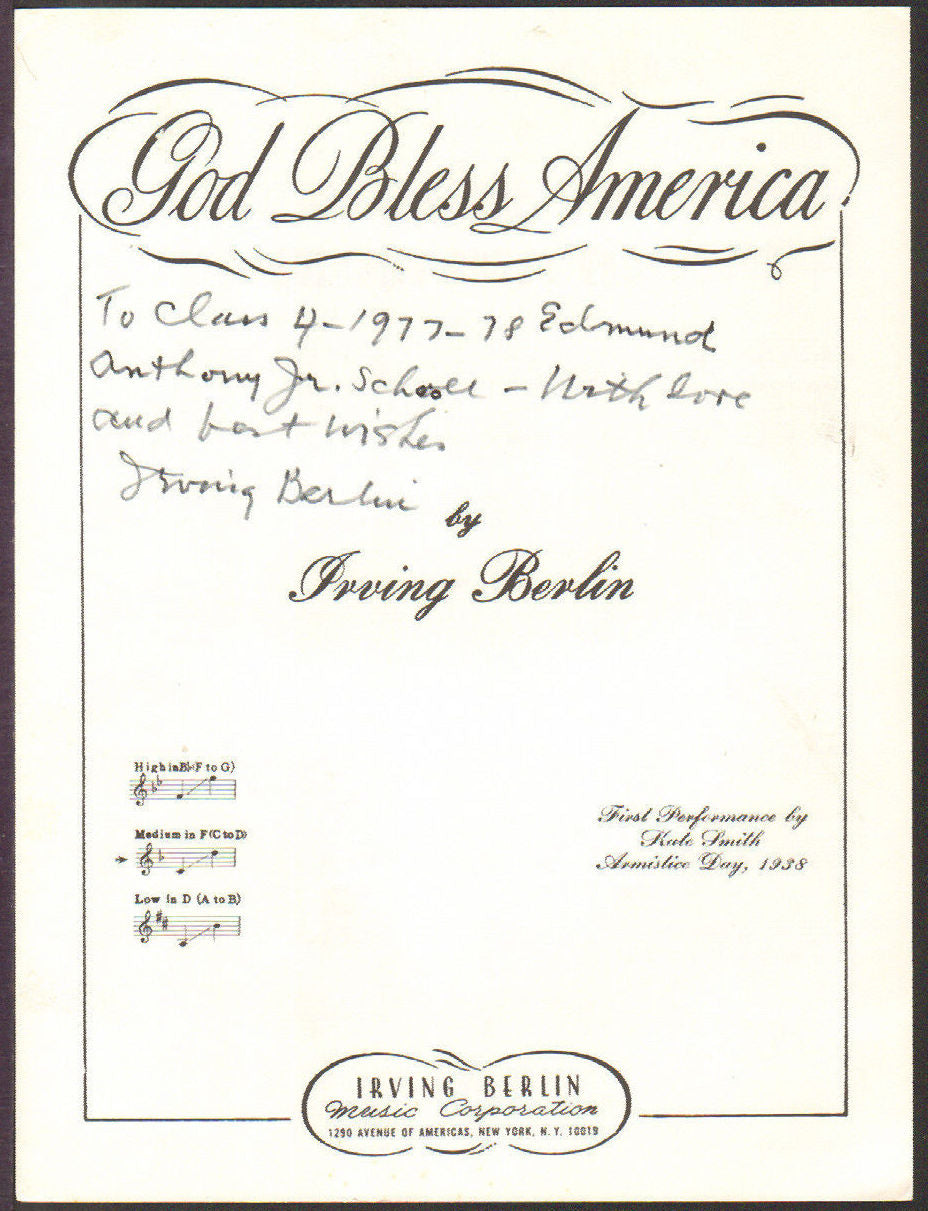 God Bless America
To Class 4-1977-78 Edmund
Anthony Jr. School - With love
and best wishes
Irving Berlin
by
Irving Berlin
High in B♭(F to G)
Medium in F(C to D)
Low in D (A to B)
First Performance by
Kate Smith
Armistice Day, 1938
IRVING BERLIN
Music Corporation
1290 AVENUE OF AMERICAS, NEW YORK, N.Y. 10019